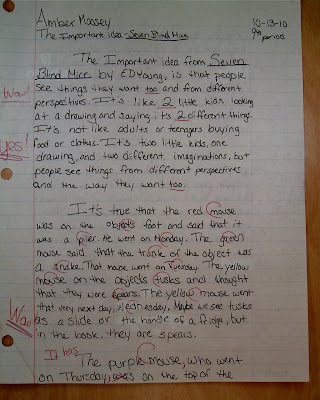 Amber Massey 10-13-10
The Important idea - Seven Blind Mice 9th period
The Important idea from Seven
Blind Mice by ED Young, is that people
Wow! see things they want too and from different
perspectives. It's like 2 little kids looking
at a drawing and saying its 2 different things.
It's not like adults or teenagers buying
Yes! food or clothes. It's two little kids, one
drawing, and two different imaginations, but
people see things from different perspectives
and the way they want too.
It's true that the red mouse
was on the objects foot and said that it
was a pller. He went on Monday. The green
mouse said that the trunk of the object was
a snake. That mouse went on Tuesday. The yellow
mouse on the objects tusks and thought
that they were spears. The yellow mouse went
that very next day, Wednesday. Maybe we see tusks
Wow as a slide or the handle of a fridge, but
in the book, they are spears.
It has
The purple mouse, who went
on Thursday, was on the top of the